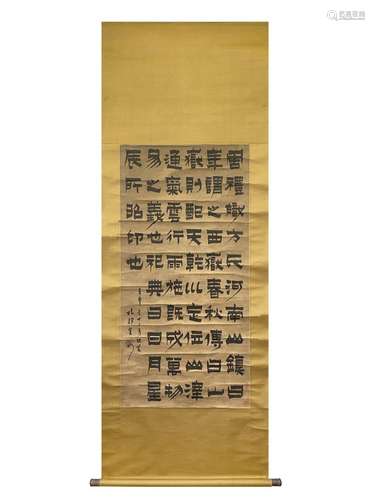 周禮職方氏河南山鎮曰
華謂之西嶽春秋傳曰山
嶽則配天乾以定位山澤
通氣雲行雨施既成萬物
易之義也祀典曰日月星
辰所昭卬也